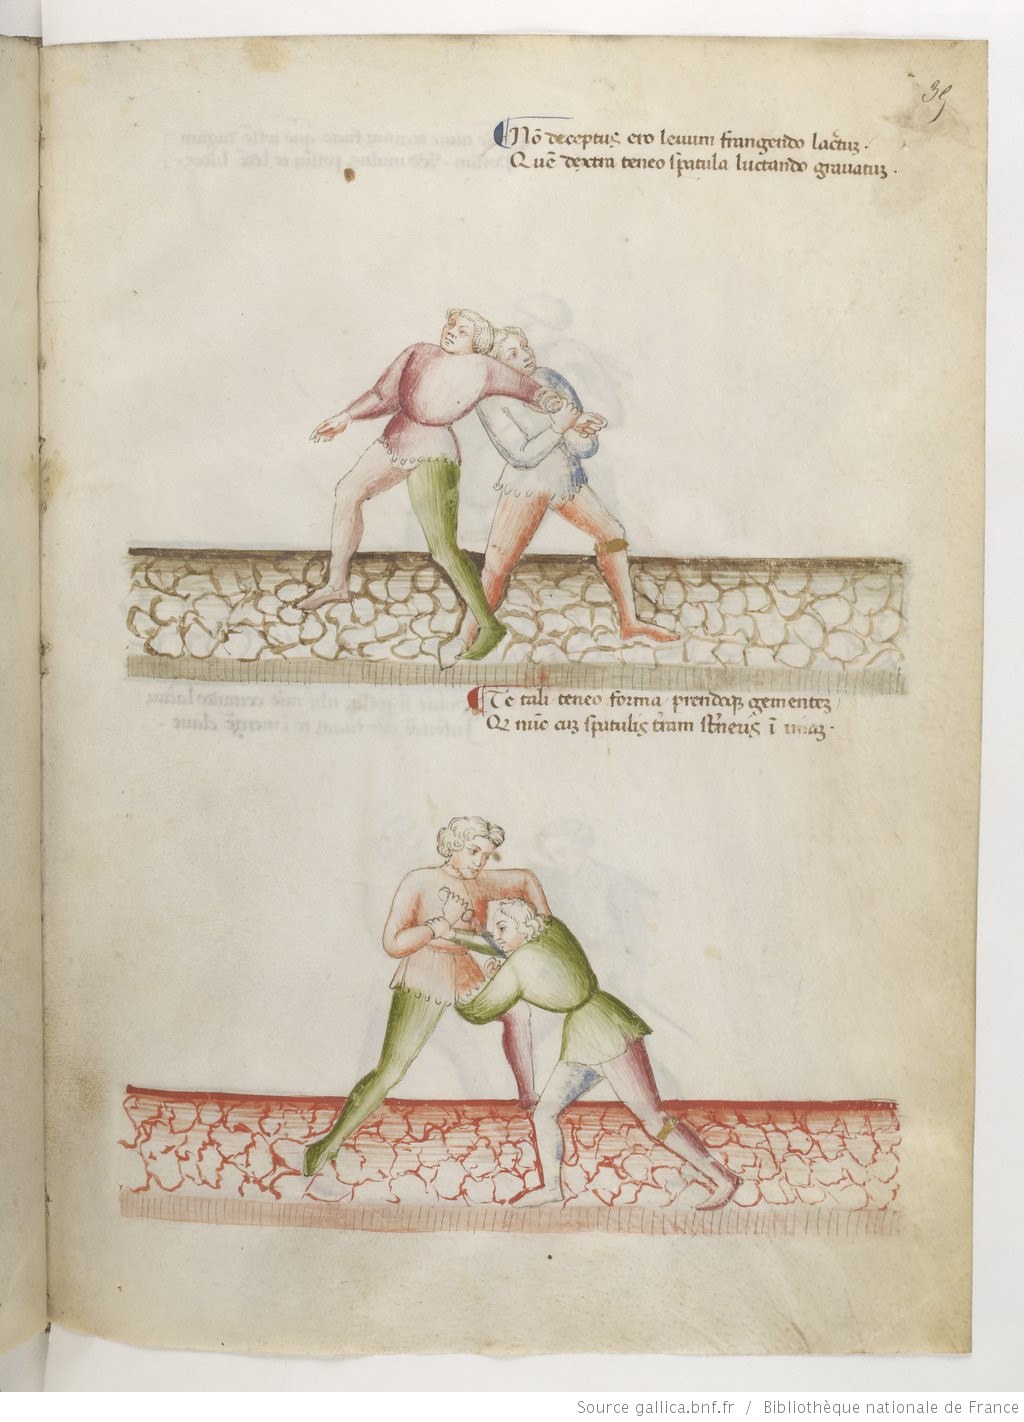 39
Nō deceptus ero levum frangendo lacertuꝫ.
Quē dextra teneo spatula luctando gravatuꝫ.
Te tali teneo forma prendaqꝫ gementeꝫ
Q nūc cuꝫ spatulis tr̄am st̄neris ī imaꝫ.
Source gallica.bnf.fr / Bibliothèque nationale de France